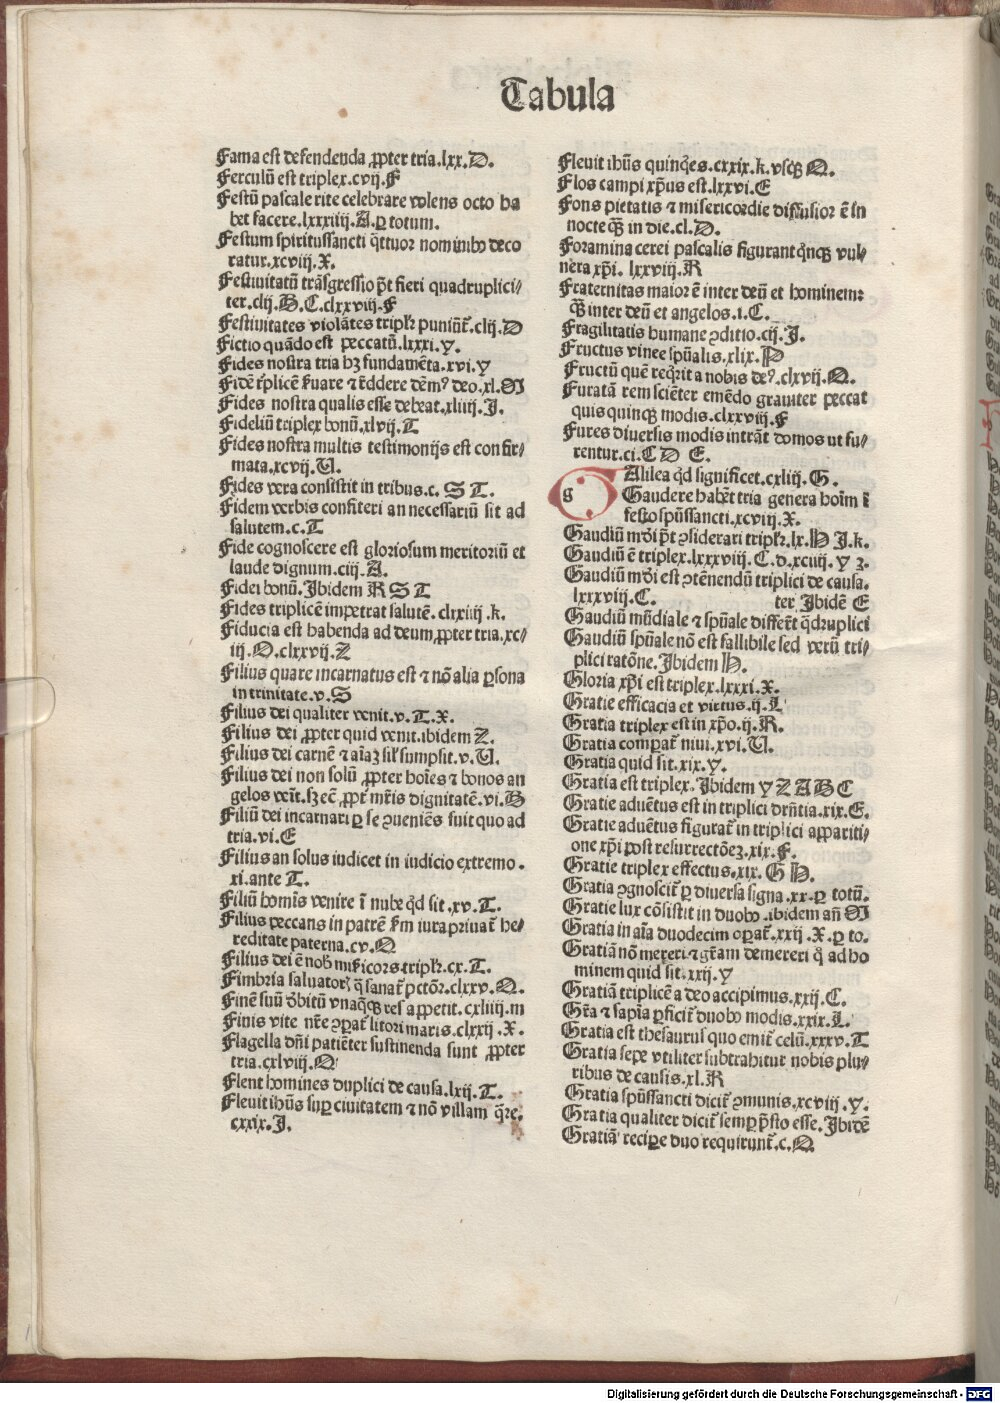 Tabula
Fama est defendenda ꝓpter tria.lxx.D.
Ferculū est triplex.cvij.F
Festū pascale rite celebrare volens octo ha
bet facere.lxxxiiij.A.ꝑ totum.
Festum spiritussancti q̄ttuor nominibꝰ deco
ratur.xcviij.X.
Festiuitatū trāsgressio pōt fieri quadruplici⸗
ter.clij.B.C.clxxviij.F
Festiuitates violātes tripłr puniūt᷑.clij.D
Fictio quādo est peccatū.lxxxi.y.
Fides nostra tria hꝫ fundamēta.xvi.y
Fidē r̄plicē ẜuare ⁊ r̄ddere dēmꝰ deo.xl.M
Fides nostra qualis esse debeat.xliiij.J.
Fideliū triplex bonū.xlvij.T
Fides nostra multis testimonijs est confir⸗
mata.xcvij.U.
Fides vera consistit in tribus.c. S T.
Fidem verbis confiteri an necessariū sit ad
salutem.c.T
Fide cognoscere est gloriosum meritoriū et
laude dignum.ciij.A.
Fidei bonū.Jbidem R S T
Fides triplicē impetrat salutē.clxiiij.k.
Fiducia est habenda ad deum ꝓpter tria.xc⸗
iij.O.clxxvij.Z
Filius quare incarnatus est ⁊ nō alia ꝑsona
in trinitate.v.S
Filius dei qualiter venit.v.T.X.
Filius dei ꝓpter quid venit.ibidem Z.
Filius dei carnē ⁊ aīaꝫ sił sumpsit.v.U.
Filius dei non solū ꝓpter hoīes ⁊ bonos an
gelos vēit.sꝫ eē ꝓpt᷑ mr̄is dignitatē.vi.B
Filiū dei incarnari ꝑ se ꝯueniēs fuit quo ad
tria.vi.E
Filius an solus iudicet in iudicio extremo.
xi.ante T.
Filiū homīs venire ī nube qd̄ sit.xv.T.
Filius peccans in patrē ẜm iura priuat᷑ he⸗
reditate paterna.cv.O
Filius dei ē nob̄ mīẜicors tripłr.cx.T.
Fimbria saluatorꝭ q̄ sanat᷑ pctōr̄.clxxv.O.
Finē suū ꝺbitū vnaq̄qꝫ res appetit.cxliiij.m
Finis vite nr̄e ꝯpat᷑ litori maris.clxxij.X.
Flagella dn̄i patiēter sustinenda sunt ꝓpter
tria.cxlviij.O
Flent homines duplici de causa.lxij.T.
Fleuit ihūs suꝑ ciuitatem ⁊ nō villam q̄re.
cxxix.J.
Fleuit ihūs quinqꝫes.cxxix.k.vsqꝫ O.
Flos campi xp̄us est.lxxvi.E
Fons pietatis ⁊ misericordie diffusior ē in
nocte qꝫ in die.cl.D.
Foramina cerei pascalis figurant qn̄qꝫ vul⸗
nera xp̄i. lxxviij.R
Fraternitas maior ē inter deū et hominem:
qꝫ inter deū et angelos.i.C.
Fragilitatis humane ꝯditio.cij.J.
Fructus vinee spūalis.xlix.P
Fructū quē reqͥrit a nobis deꝰ.clxvij.O.
Furatā rem sciēter emēdo grauiter peccat
quis quinqꝫ modis.clxxviij.F
Fures diuersis modis intrāt domos ut fu⸗
rentur.ci.C D E.
g Alilea qd̄ significet.cxliij.G.
Gaudere habēt tria genera hoīm ī
festo spūssancti.xcviij.X.
Gaudiū mūdi pōt ꝯsiderari tripłr.lx.H J.k.
Gaudiū ē triplex.lxxxviij.C.d.xciiij.y z.
Gaudiū mūdi est ꝯtēnendū triplici de causa.
lxxxviij.C. ter Jbidē E
Gaudiū mūdiale ⁊ spūale differt᷑ qd̄ruplici
Gaudiū spūale nō est fallibile sed verū tri⸗
plici ratōne.Jbidem H.
Gloria xp̄i est triplex.lxxxi.X.
Gratie efficacia et virtus.ij.L
Gratia triplex est in xp̄o.ij.R.
Gratia compat᷑ niui.xvi.U.
Gratia quid sit.xix.y.
Gratia est triplex.Jbidem y Z A B C
Gratie aduētus est in triplici dr̄ntia.xix.E.
Gratie aduētus figurat᷑ in triplici appariti⸗
one xp̄i post resurrectōeꝫ.xix.F.
Gratie triplex effectus.xix.G H.
Gratia ꝯgnoscit᷑ ꝑ diuersa signa.xx.ꝑ totū.
Gratie lux cōsistit in duobꝰ.ibidem an̄ M
Gratia in aīa duodecim oꝑat᷑.xxij.X.ꝑ to.
Gratiā nō mereri ⁊ gr̄am demereri qͥ ad ho
minem quid sit.xxij.y
Gratiā triplicē a deo accipimus.xxij.C.
Gr̄a ⁊ sapīa ꝑficit᷑ duobꝰ modis.xxix.L.
Gratia est thesaurus quo emit᷑ celū.xxxv.T
Gratia sepe vtiliter subtrahitur nobis plu⸗
ribus de causis.xl.R
Gratia spūssancti dicit᷑ ꝯmunis.xcviij.y.
Gratia qualiter dicit᷑ semꝑ p̄sto esse.Jbidē
Gratiā reciꝑe duo requirunt᷑.c.O.
Digitalisierung gefördert durch die Deutsche Forschungsgemeinschaft - DFG